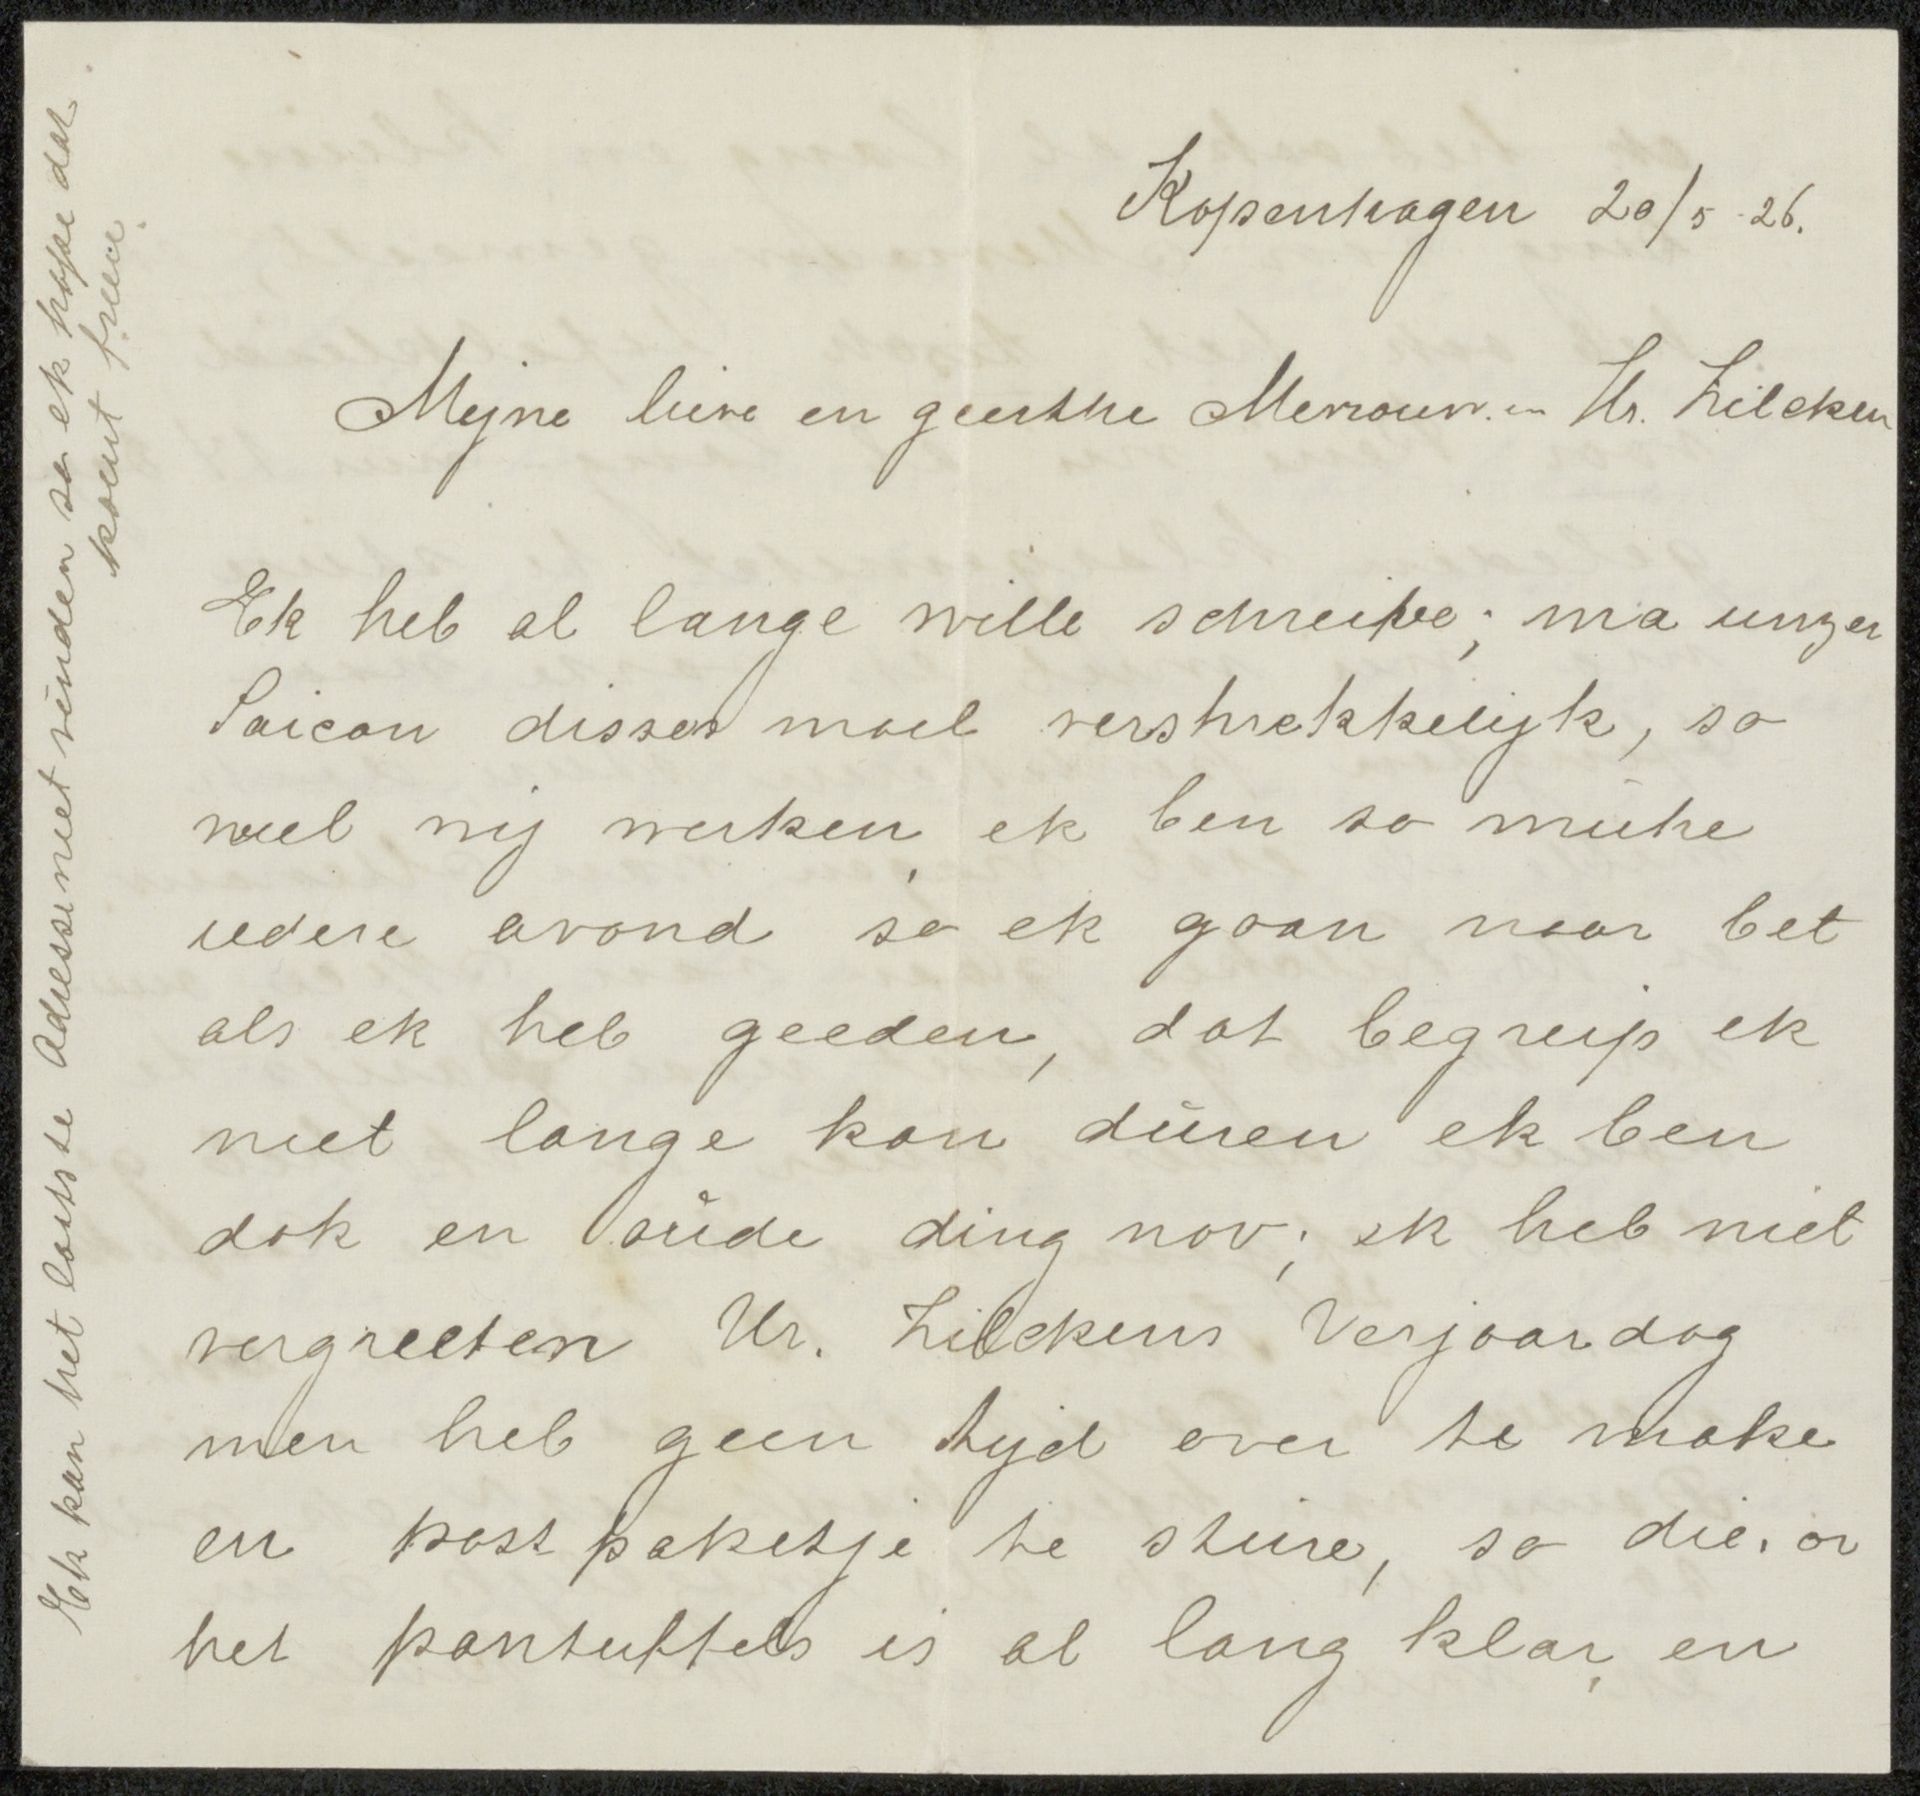 Kopenhagen 20/5 26.
Mejne lieve en geerthe Mevrouw. en Hr. Zilcken
Ek heb al lange wille schreibe; ma unzer
Saicon disses mael vershrekkelijk, so
veel wij werken, ek ben so mühe
iedere avond so ek gaan naar bet
als ek heb geeden, dat begreip ek
niet lange kan düren ek ben
dok en oude ding nov; ek heb niet
vergreeten Hr. Zilckens Verjaardag
men heb geen tijd over te make
en post paketje te stüre, so die. or
het pantuffels is al lang klar, en
Ek kan het loatste Adresse niet vinden so ek hope dat
komt